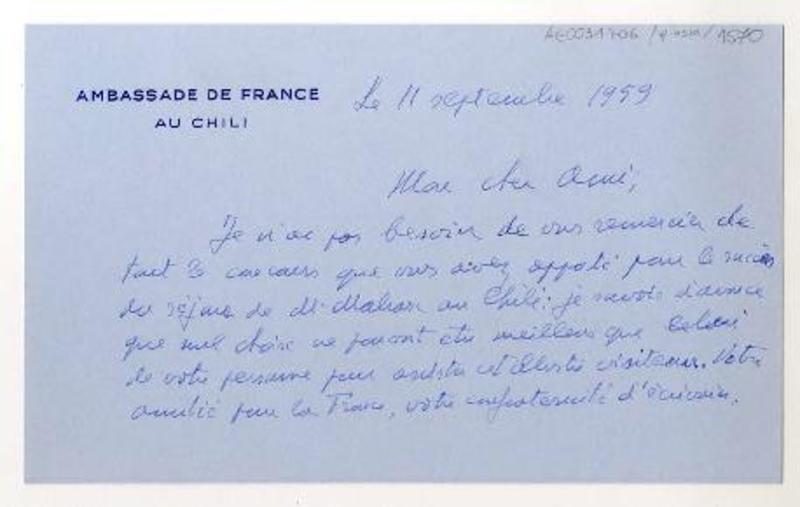 AE0031406 / 1570
AMBASSADE DE FRANCE
AU CHILI
Le 11 septembre 1959
Mon cher Ami,
Je n'ai pas besoin de vous remercier de
tout le concours que vous avez apporté pour le succès
du séjour de M. Malraux au Chili: je savais d'avance
que nul choix ne pouvait être meilleur que celui
de votre personne pour assister cet illustre visiteur. Votre
amitié pour la France, votre confraternité d'écrivain,